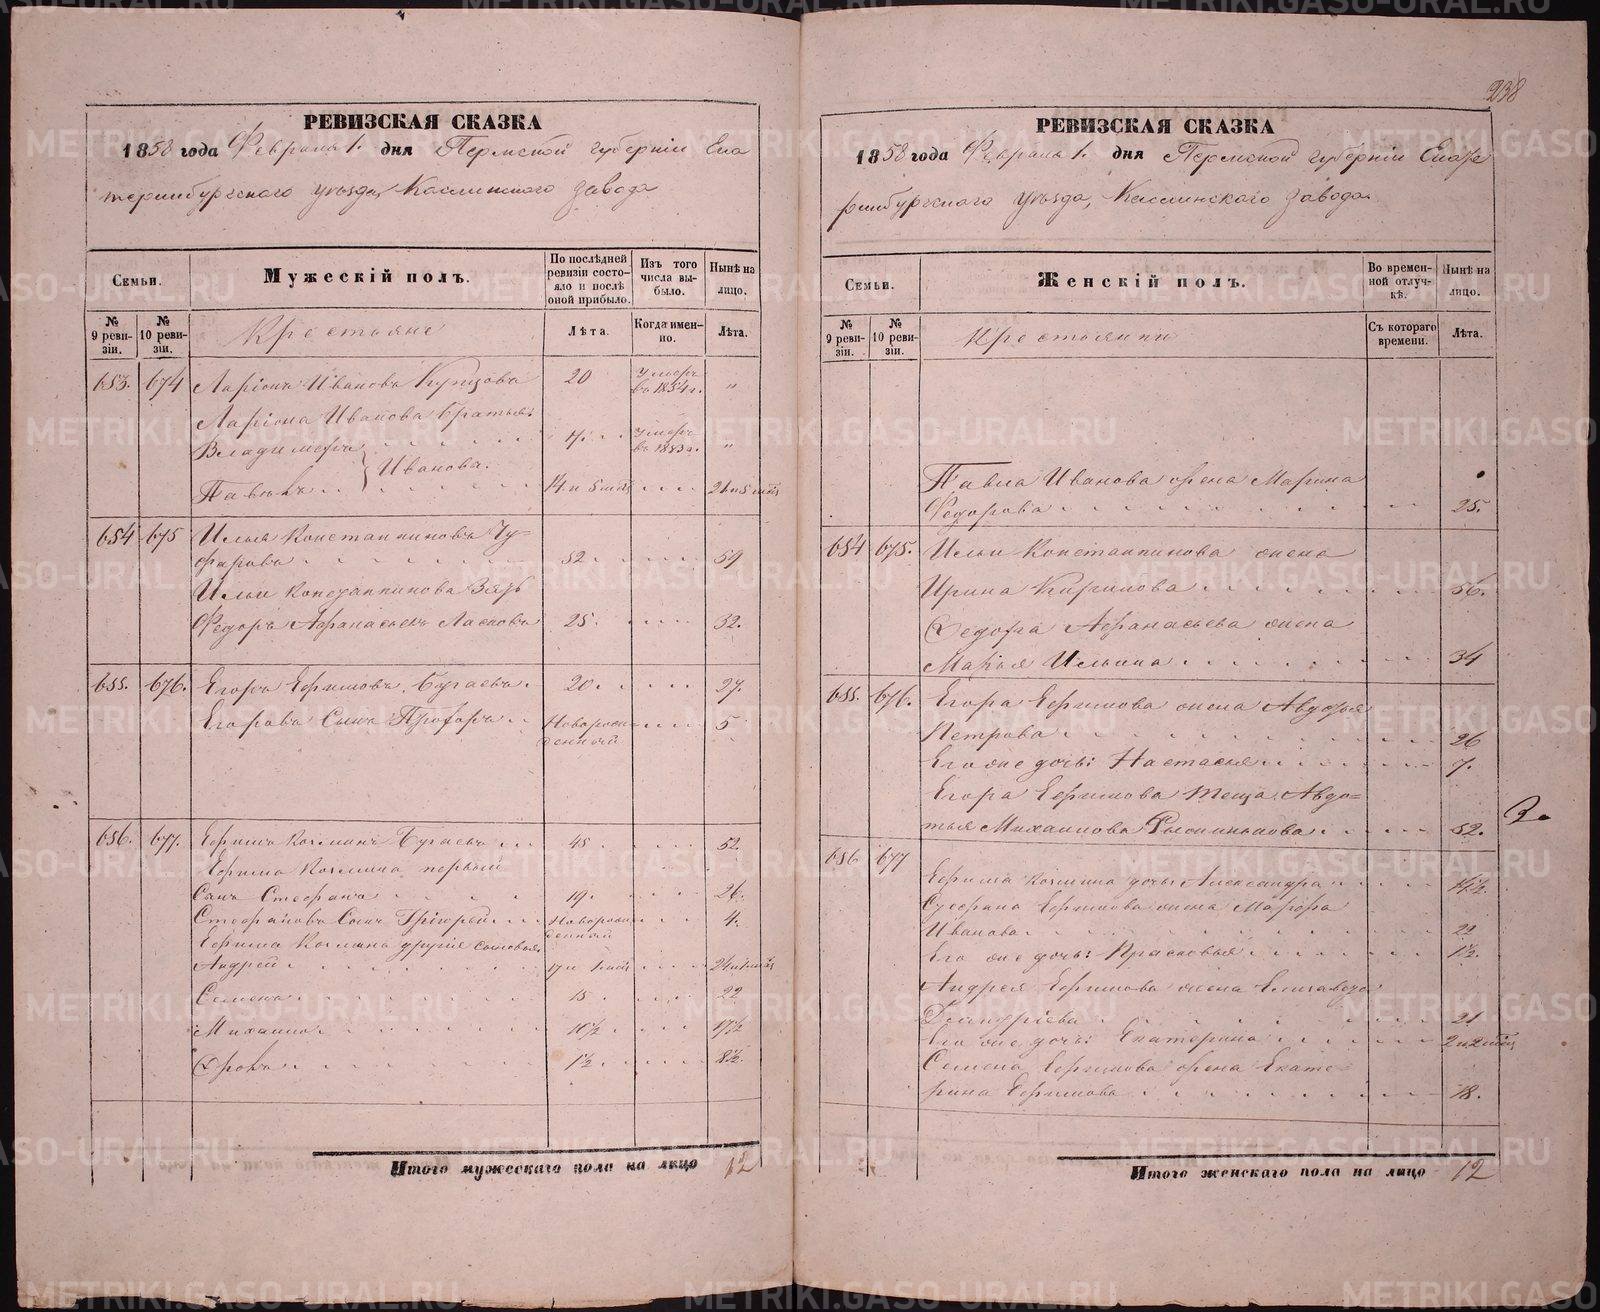 238
РЕВИЗСКАЯ СКАЗКА
1858 года Февраля 1. дня Пермской губерніи Ека
теринбургскаго уѣзда, Каслинскаго завода
Семьи.
Мужескій полъ.
По послѣдней ревизіи состояло и послѣ оной прибыло.
Изъ того числа выбыло.
Нынѣ на лицо.
№ 9 ревизіи.
№ 10 ревизіи.
Крестьяне
Лѣта.
Когда именно.
Лѣта.
653. 674 Ларіонъ Ивановъ 20 Умеръ въ 1854 г. "
Ларіона Иванова братья:
Владимеръ 4. Умеръ "
Иванова.
Павелъ 14 и 5 мѣс 21 и 5 мѣс
654 675 Илья Константиновъ Чу-
фаровъ 52 59
Ильи Константинова Зять
Федоръ Афанасьевъ 25. 32.
655. 676. Егоръ Ефимовъ Бугаевъ 20. 27.
Егоровъ Сынъ Прокоръ Новорож-
денный 5
656. 677. Ефимъ Козминъ Бугаевъ 45 52.
Ефима Козмина первый
Сынъ Стефанъ 19. 26.
Стефановъ Сынъ Григорей Новорож-
денный 4.
Ефима Козмина другіе сыновья
Андрей 24 и 1 мѣс
Семенъ 15 22
Михаило 10½ 17½
Фролъ 1½ 8½.
Итого мужескаго пола на лицо 12
РЕВИЗСКАЯ СКАЗКА
1858 года Февраля 1. дня Пермской губерніи Екате
ринбургскаго уѣзда, Каслинскаго завода
Семьи.
Женскій полъ.
Во временной отлучкѣ.
Нынѣ на лицо.
№ 9 ревизіи.
№ 10 ревизіи.
Крестьянки
Съ котораго времени.
Лѣта.
Павла Иванова жена Марина
Федорова 25.
654 675. Ильи Константинова жена
Ирина Кирилова 56.
Федора Афанасьева жена
Марья Ильина 34
655. 676. Егора Ефимова жена Авдотья
Петрова 26
Его же дочь: Настасья 7.
Егора Ефимова теща Авдо=
тья Михайлова 52.
656 677 Ефима Козмина дочь Александра 14½.
Стефана Ефимова жена Марфа
Иванова 22
Его же дочь: Прасковья 1½.
Андрея Ефимова жена Елизавета
21
Его же дочь: Екатерина 2 и 2 мѣс
Семена Ефимова жена Екате-
рина Ефимова 18.
Итого женскаго пола на лицо 12
METRIKI.GASO-URAL.RU